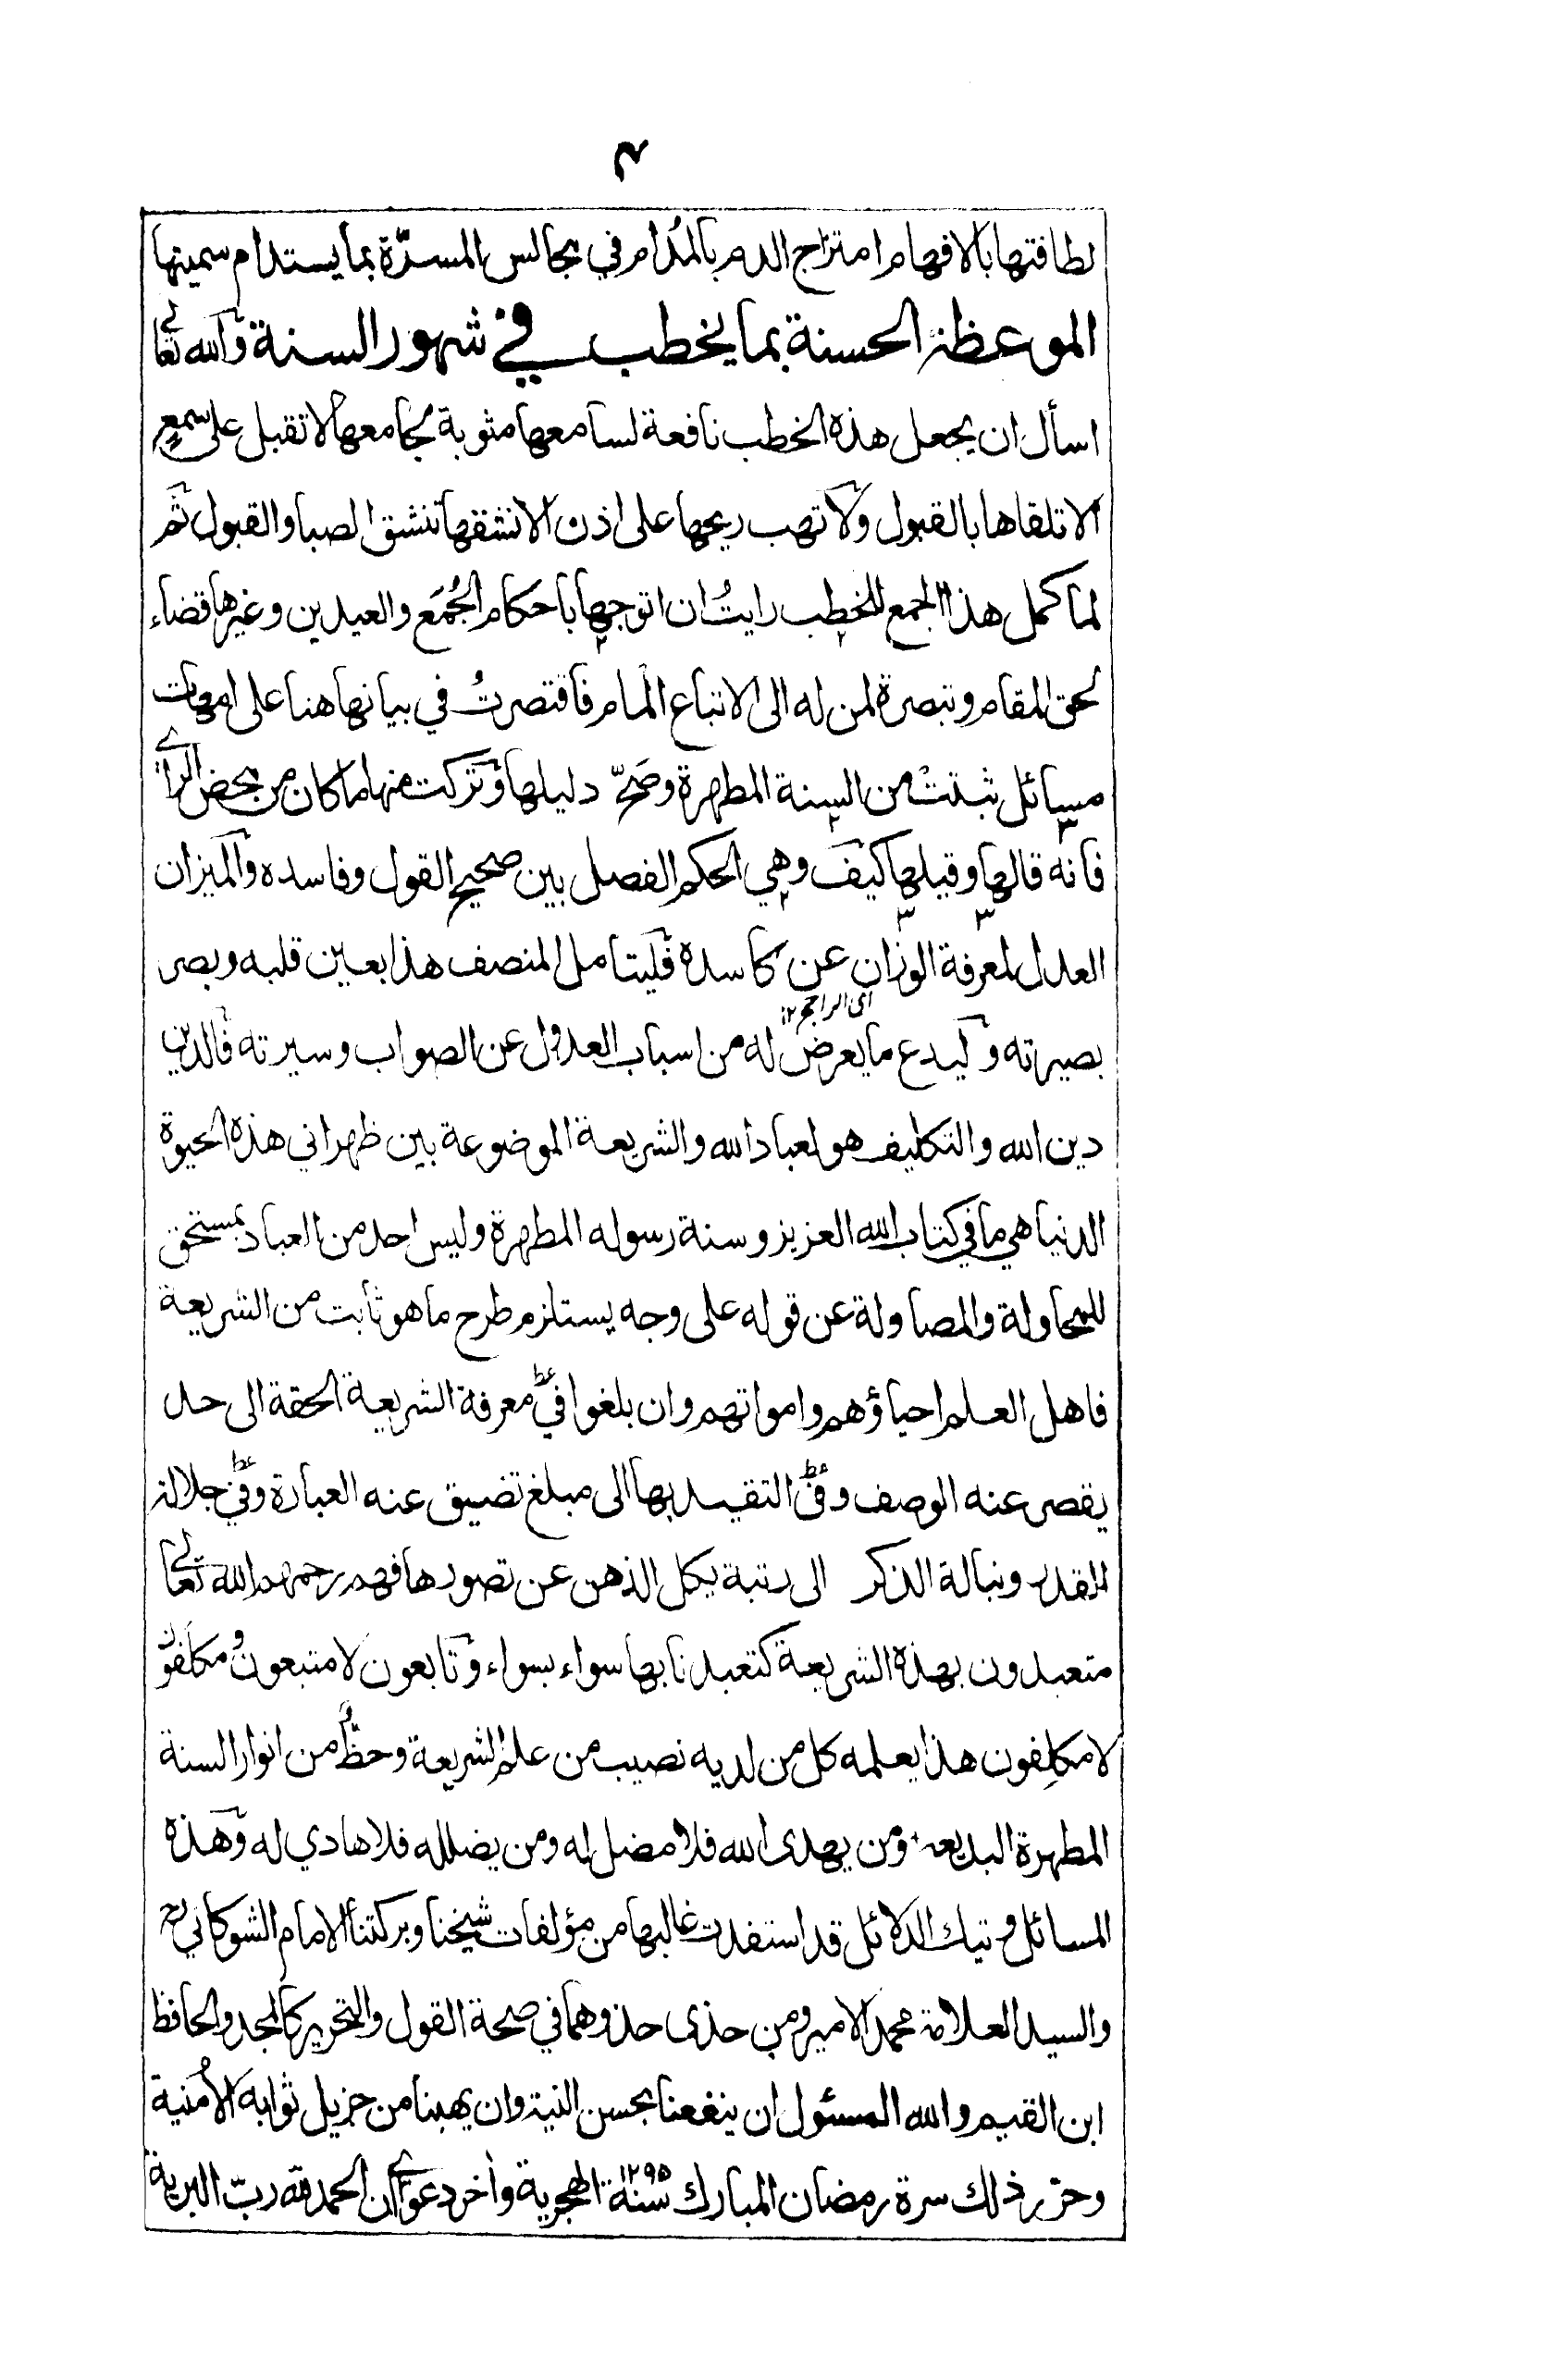 ۴
لطافتها بالافهام امتزاج الدم بالمُدام في مجالس المسرّة بما يستدام سميتها
الموعظة الحسنة بما يخطب في شهور السنة والله تعالى
اسأل ان يجعل هذه الخطب نافعة لسامعها مثوبة لجامعها لا تقبل على سمعٍ
الا تلقاها بالقبول ولا تهب ريحها على اذن الا نشقها تنشق الصبا والقبول ثم
لما كمل هذا الجمع للخطب رايتُ ان اتوجها باحكام الجُمَع والعيدين وغيرها قضاء
لحق المقام وتبصرة لمن له الى الاتباع المام فاقتصرتُ في بيانها هنا على امهات
مسائل ثبتتْ من السنة المطهرة وصَحّ دليلها وتركت منها ما كان من محض الراى
فانه قالها وقيلها كيف وهي الحكم الفصل بين صحيح القول وفاسده والميزان
العدل لمعرفة الوزان عن كاسده فليتامل المنصف هذا بعين قلبه وبصر
اى الراجح ١٢
بصيرته وليدع ما يعرض له من اسباب العدول عن الصواب وسيرته فالدين
دين الله والتكليف هو لعباد الله والشريعة الموضوعة بين ظهراني هذه الحيوة
الدنيا هي ما في كتاب الله العزيز وسنة رسوله المطهرة وليس احد من العباد بمستحق
للمحاولة والمصاولة عن قوله على وجه يستلزم طرح ما هو ثابت من الشريعة
فاهل العلم احياؤهم وامواتهم وان بلغوا في معرفة الشريعة الحقة الى حد
يقصر عنه الوصف وفي التقيد بها الى مبلغ تضيق عنه العبارة وفي جلالة
القدر ونبالة الذكر الى رتبة يكل الذهن عن تصورها فهم رحمهم الله تعالى
متعبدون بهذه الشريعة كتعبدنا بها سواء بسواء وتابعون لا متبعون ومكلَفون
لا مكلِفون هذا يعلمه كل من لديه نصيب من علم الشريعة وحظٌ من انوار السنة
المطهرة البديعة ومن يهدى الله فلا مضل له ومن يضلله فلا هادي له وهذه
المسائل وتيك الدلائل قد استفدت غالبها من مؤلفات شيخنا وبركتنا الامام الشوكاني رح
والسيد العلامة محمد الامير ومن حذى حذوهما في صحة القول والتحرير كالمجد والحافظ
ابن القيم والله المسئول ان ينفعنا بحسن النية وان يهبنا من جزيل ثوابه الاُمنية
وحرّر ذلك سرة رمضان المبارك سنة ١٢٩٥ الهجرية وآخر دعواى ان الحمد لله ربّ البرية